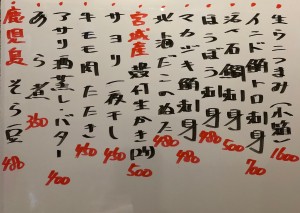 生うにつまみ(小箱) 1600
インドマグロ中トロ刺身 700
活〆石鯛刺身 500
ほうぼう刺身 480
マカジキ刺身 480
地だこのぬた 480
宮城産殻付生かき(2ヶ) 500
サヨリ一夜干し 450
牛モモ肉たたき 450
アサリ酒蒸しバター 400
あら煮 350
鹿児島そら豆 480